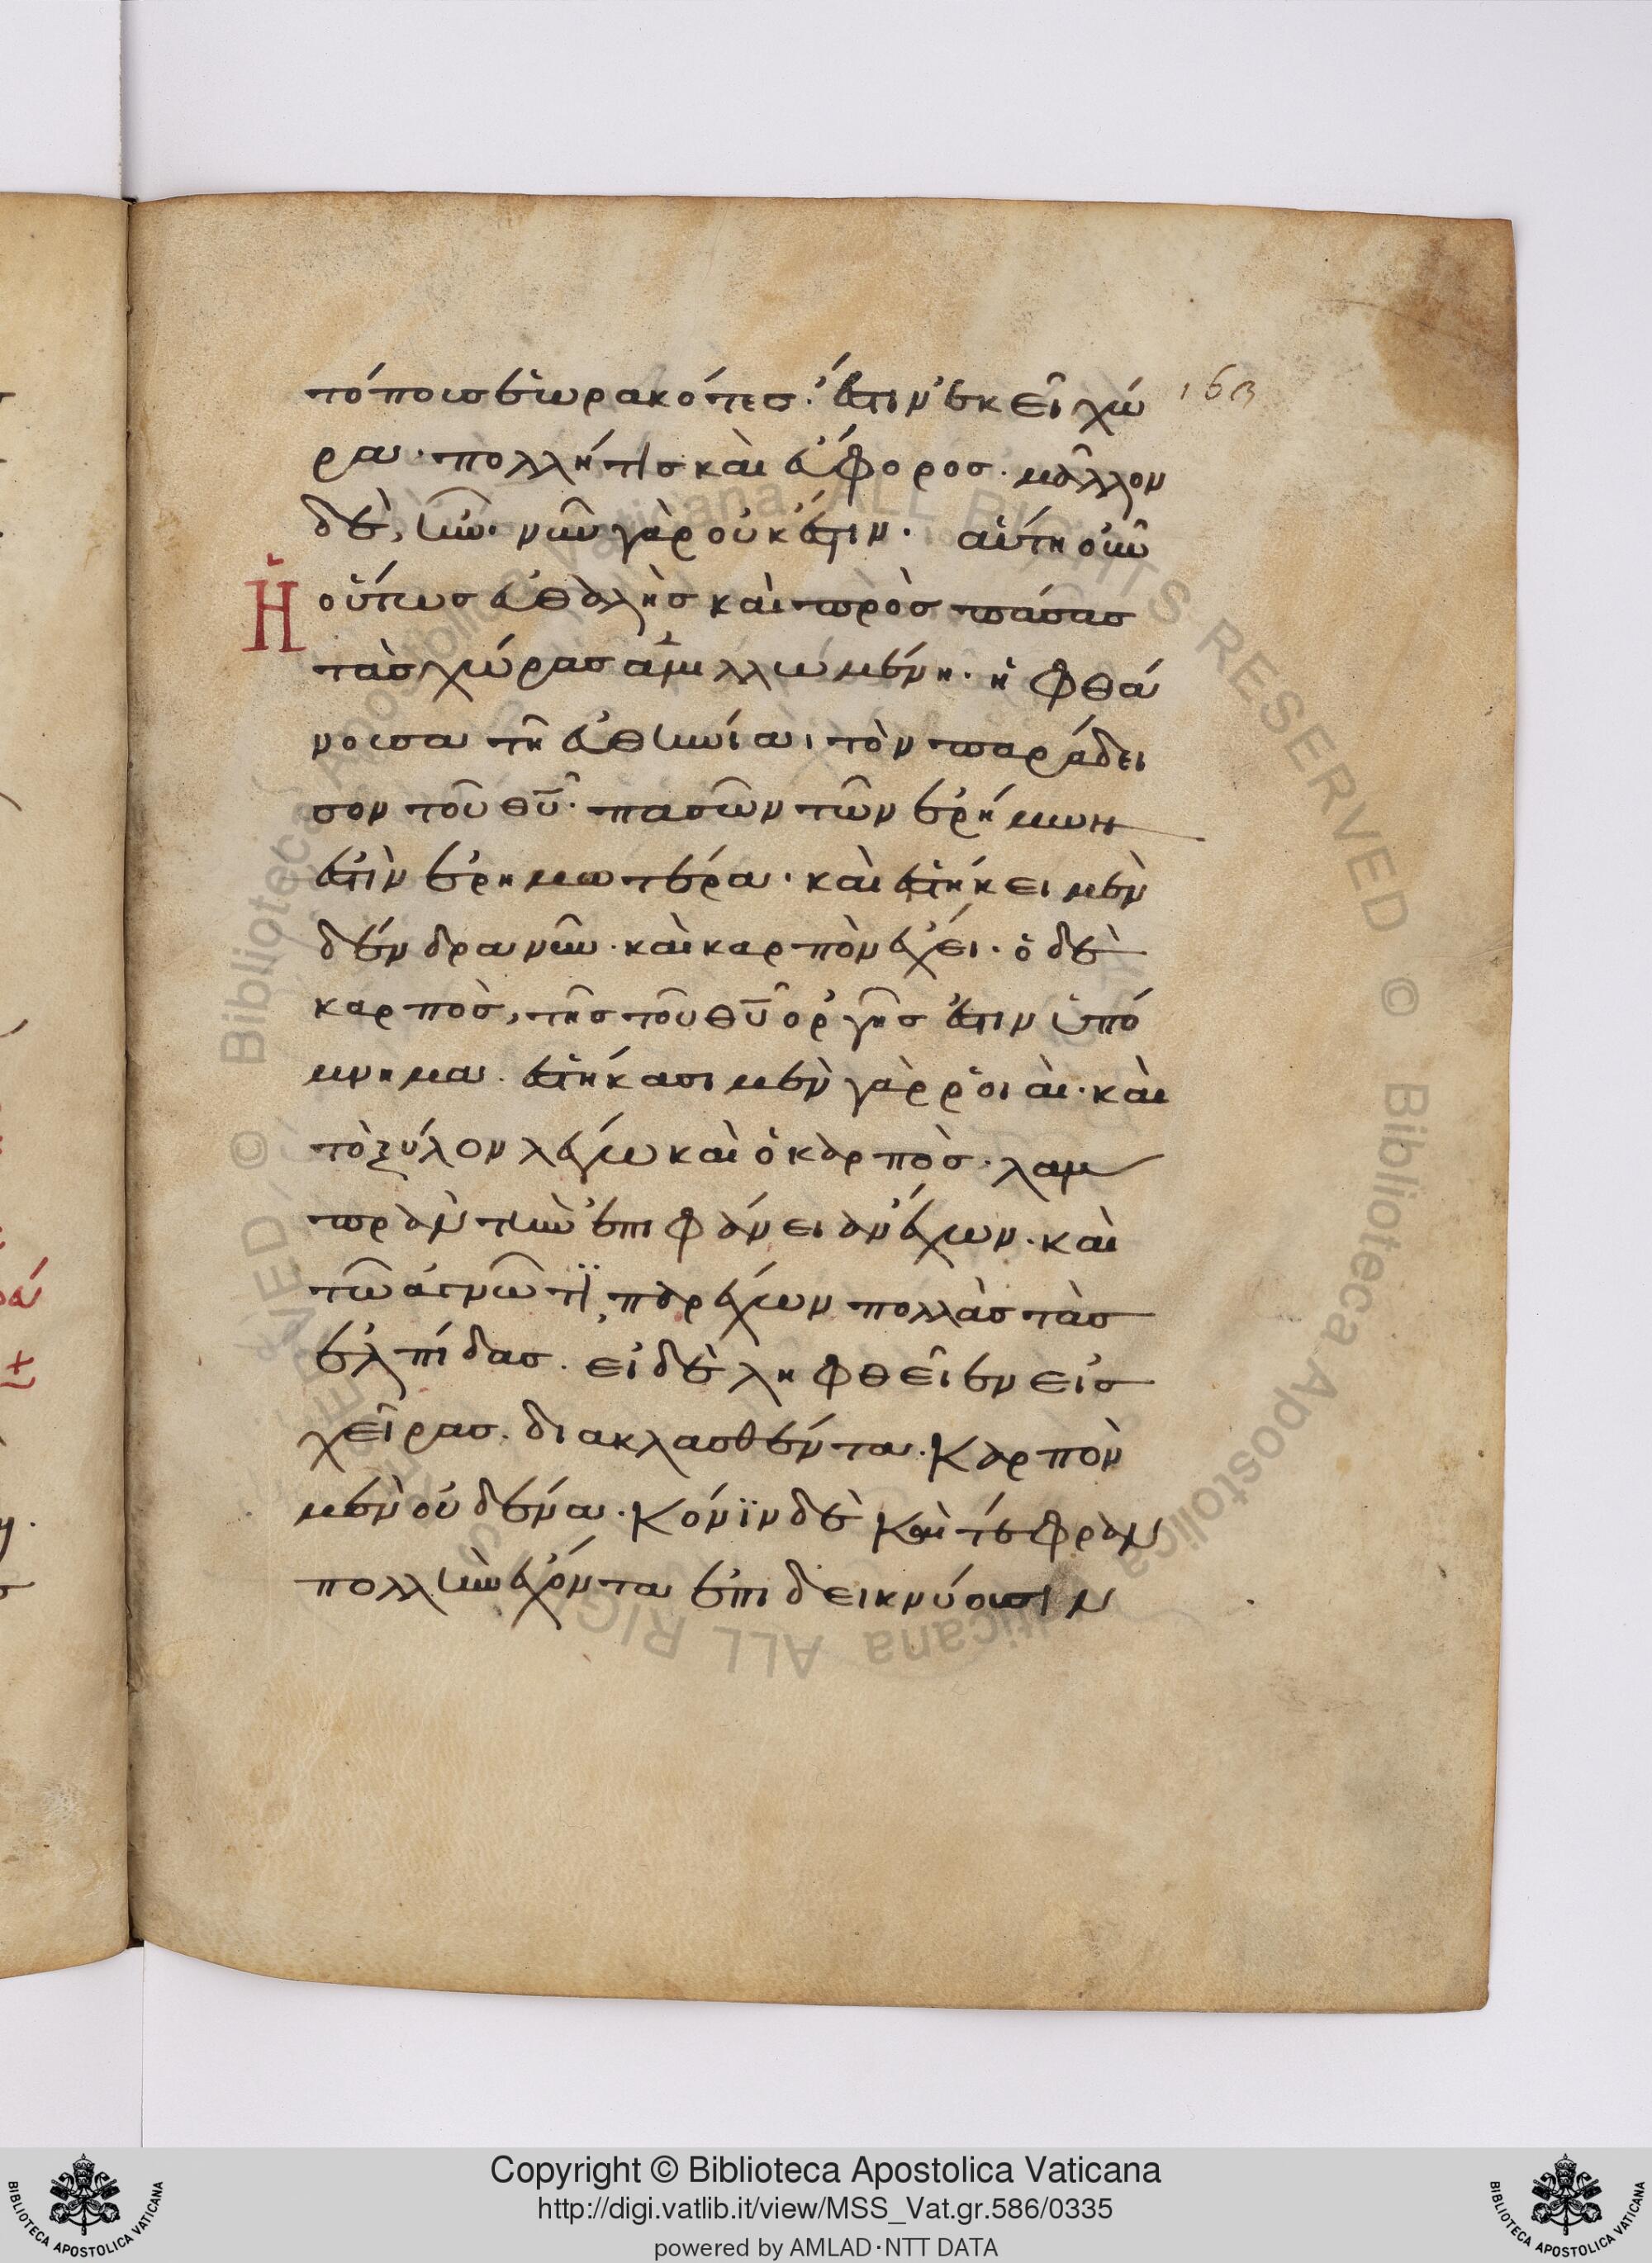 τόποις ἑωρακότες· ἔστιν ἐκεῖ χώ
163
ρα· πολλή τις καὶ εὔφορος· μᾶλλον
δὲ, ἦν· νῦν γὰρ οὐκ ἔστιν· αὕτη οὖν
Ἡ οὕτως εὐθαλὴς καὶ πρὸς πάσας
τὰς χώρας ἁμιλλωμένη· ἡ φθά
νουσα τῆ εὐθηνία, τὸν παράδει
σον τοῦ θῦ· πασῶν τῶν ἐρήμων
ἐστὶν ἐρημωτέρα· καὶ ἑστήκει μὲν
δένδρα νῦν· καὶ καρπὸν ἔχει· ὁ δὲ
καρπὸς, τῆς τοῦ θῦ ὀργῆς ἐστιν ὑπό
μνημα· ἑστήκασι μὲν γὰρ ῥοιαὶ· καὶ
τὸ ξύλον λέγω καὶ ὁ καρπὸς· λαμ
πρὰν τὴν ἐπιφάνειαν ἔχων· καὶ
τῶ ἀγνῶτϊ, παρέχων πολλὰς τὰς
ἐλπίδας· εἰ δὲ ληφθεῖεν εἰς
χεῖρας· διακλασθέντα· καρπὸν
μὲν οὐδένα· κόνϊν δὲ καὶ τέφραν
πολλὴν ἔχοντα ἐπιδεικνύουσιν
Copyright © Biblioteca Apostolica Vaticana
http://digi.vatlib.it/view/MSS_Vat.gr.586/0335
powered by AMLAD·NTT DATA